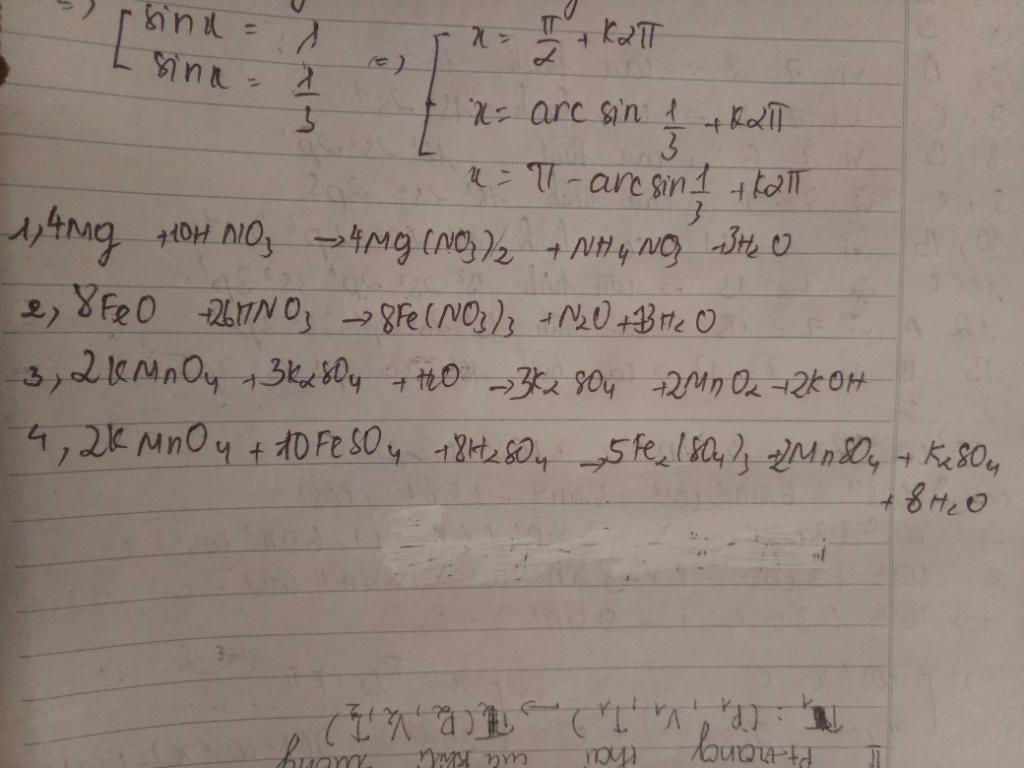 =) [ sinx = 1 =) [ x = π/2 + K2π
sinx = 1/3 x = arc sin 1/3 + K2π
x = π - arcsin 1/3 + K2π
1, 4Mg + 10HNO3 → 4Mg(NO3)2 + NH4NO3 + 3H2O
2, 8FeO + 26HNO3 → 8Fe(NO3)3 + N2O + 13H2O
3, 2KMnO4 + 3K2SO4 + H2O → 3K2SO4 + 2MnO2 + 2KOH
4, 2KMnO4 + 10FeSO4 + 8H2SO4 → 5Fe2(SO4)3 + 2MnSO4 + K2SO4
+ 8H2O
II Pt trạng thái của khí lí tưởng
TT1 : (P1, V1, T1) → TT2 (P2, V2, T2)